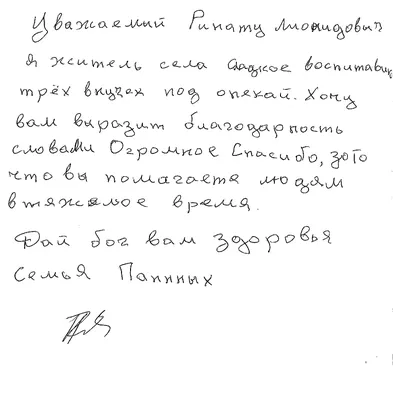 Уважаемий Ринату Лионидович
я житель села Сладкое воспитаващ
трёх внучех под опекай. Хочу
вам выразит благодарность
словами Огромное Спасибо, зото
что вы помагаете людям
в тяжелое время.
Дай бог вам здоровья
Семья Панных